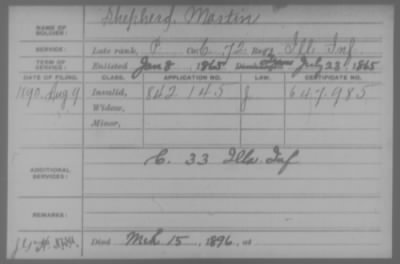 NAME OF SOLDIER: Shepherd, Martin
SERVICE: Late rank, P Co. C, 72 Reg't Ill. Inf.
TERM OF SERVICE: Enlisted Jan 8, 1865 July 23, 1865
DATE OF FILING. CLASS. APPLICATION NO. LAW. CERTIFICATE NO.
1890 Aug 9 Invalid, 842145 J 647.985
Widow,
Minor,
ADDITIONAL SERVICES: C. 33 Ills. Inf
REMARKS:
Died Mch 15, 1896, at